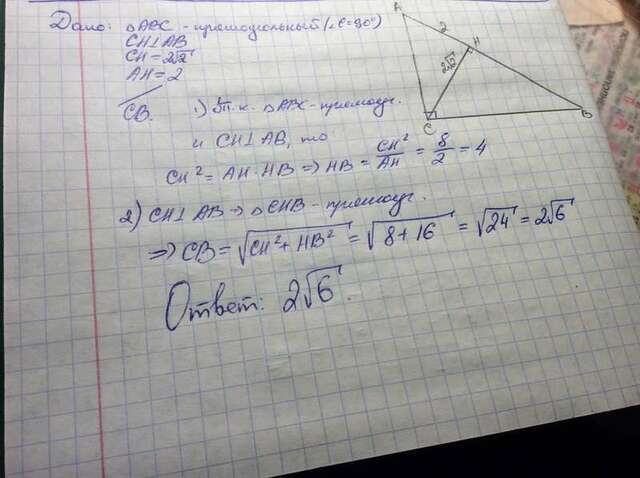 Дано: △ABC - прямоугольный (∠C=90°)
CH⊥AB
CH=2√2
AH=2
CB.
1) т.к. △ABC - прямоуг.
и CH⊥AB, то
CH² = AH·HB ⇒ HB = CH²/AH = 8/2 = 4
2) CH⊥AB ⇒ △CHB - прямоуг.
⇒ CB = √(CH² + HB²) = √(8+16) = √24 = 2√6
Ответ: 2√6.
A
2
H
2√2
C
B